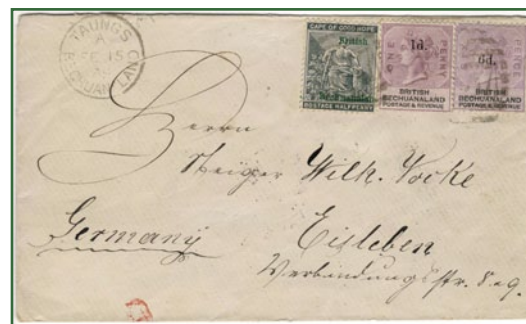 TAUNGS
A
BECHUANALAND
CAPE OF GOOD HOPE
British
POSTAGE HALFPENNY
ONE PENNY
1d.
BRITISH
BECHUANALAND
POSTAGE & REVENUE
PENCE
6d.
BRITISH
BECHUANALAND
POSTAGE & REVENUE
Herrn
Steiger Wilh. Vocke
Eisleben
Germany
Verbindungsstr. 8 a 9.